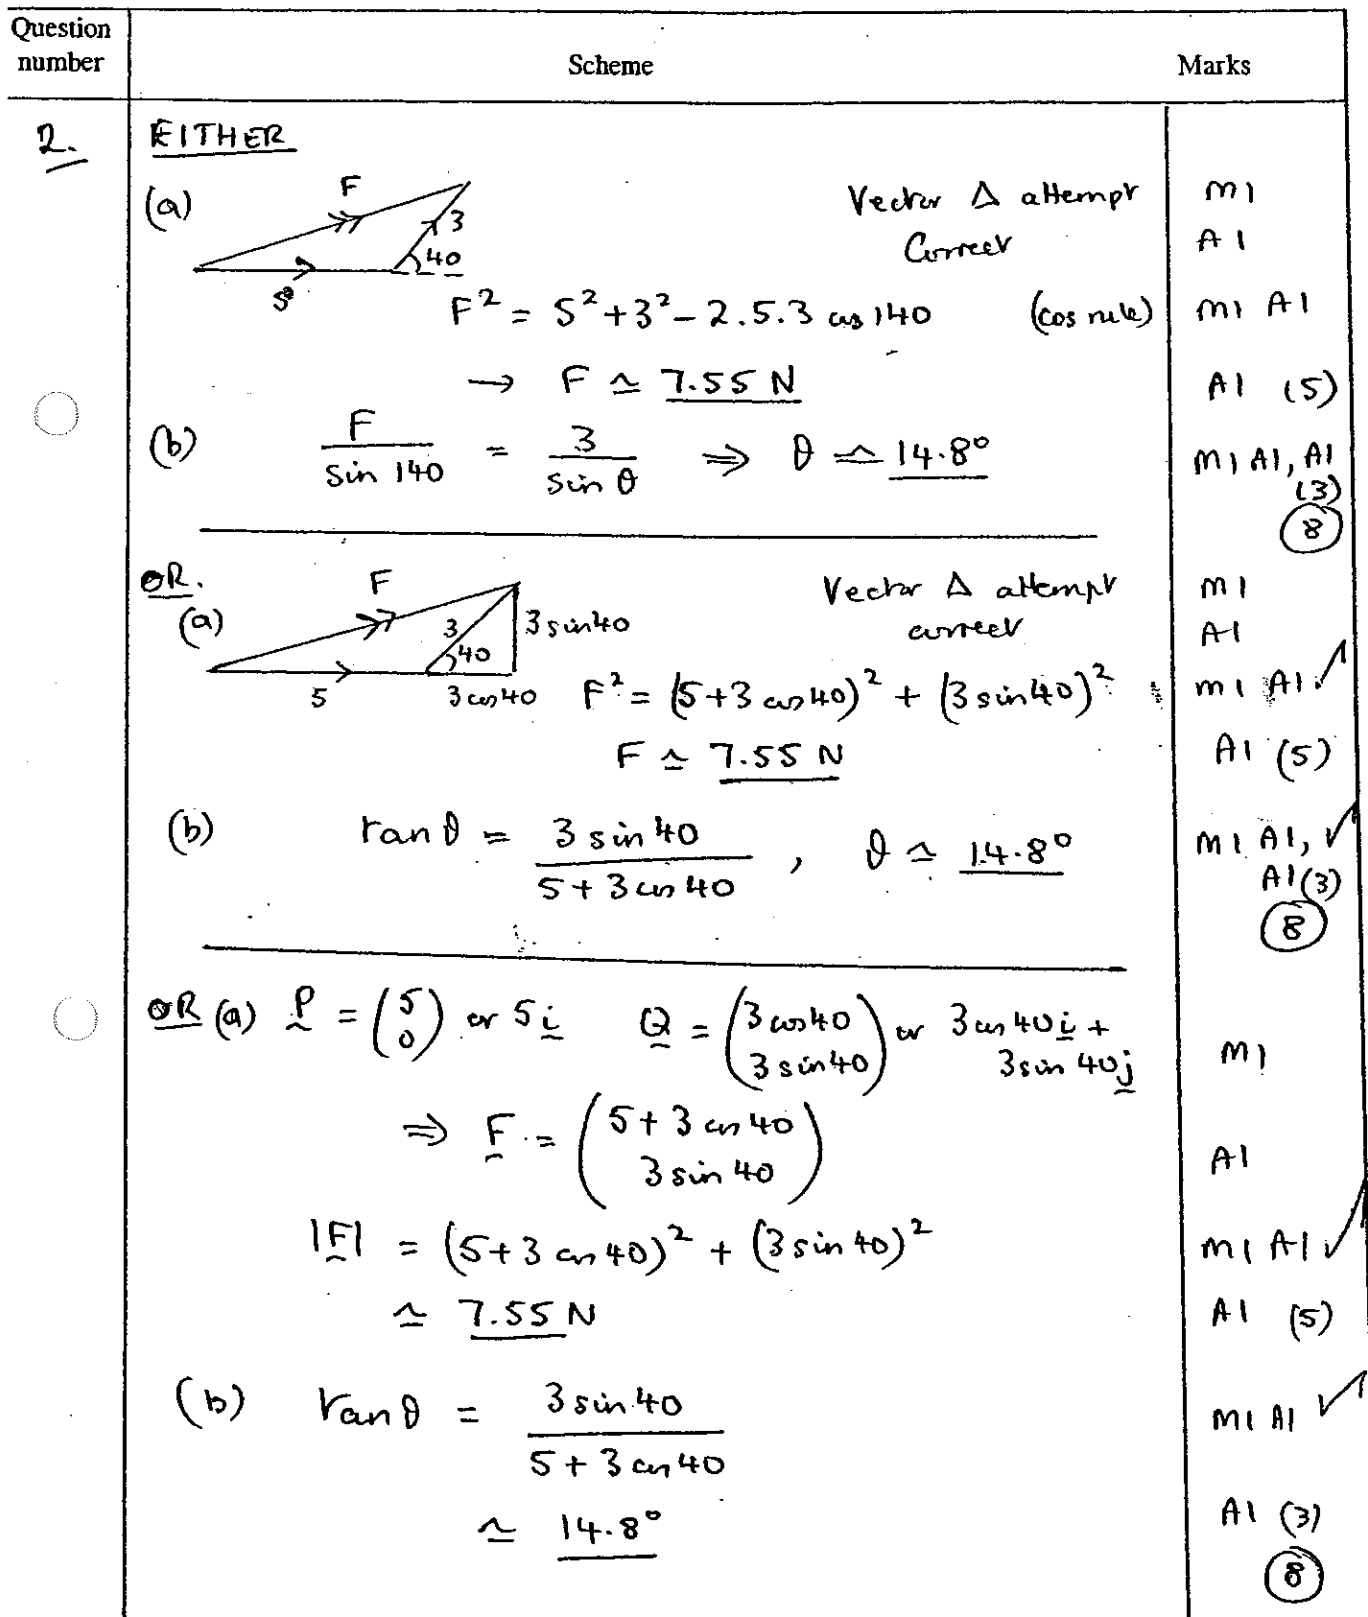 Question number Scheme Marks
2. EITHER
(a) F 3 40 5 Vector Δ attempt M1
Correct A1
F² = 5² + 3² – 2.5.3 cos 140 (cos rule) M1 A1
→ F ≃ 7.55 N A1 (5)
(b) F / sin 140 = 3 / sin θ ⇒ θ ≃ 14.8° M1 A1, A1
(3)
(8)
OR.
(a) F 3 40 3 sin 40 5 3 cos 40 Vector Δ attempt M1
correct A1
F² = (5 + 3 cos 40)² + (3 sin 40)² M1 A1 ✓
F ≃ 7.55 N A1 (5)
(b) tan θ = 3 sin 40 / (5 + 3 cos 40) , θ ≃ 14.8° M1 A1, ✓
A1 (3)
(8)
OR (a) P = (5 0) or 5i Q = (3 cos 40 3 sin 40) or 3 cos 40i +
3 sin 40j M1
⇒ F = (5 + 3 cos 40 3 sin 40) A1
|F| = (5 + 3 cos 40)² + (3 sin 40)² M1 A1 ✓
≃ 7.55 N A1 (5)
(b) tan θ = 3 sin 40 / (5 + 3 cos 40) M1 A1 ✓
≃ 14.8° A1 (3)
(8)